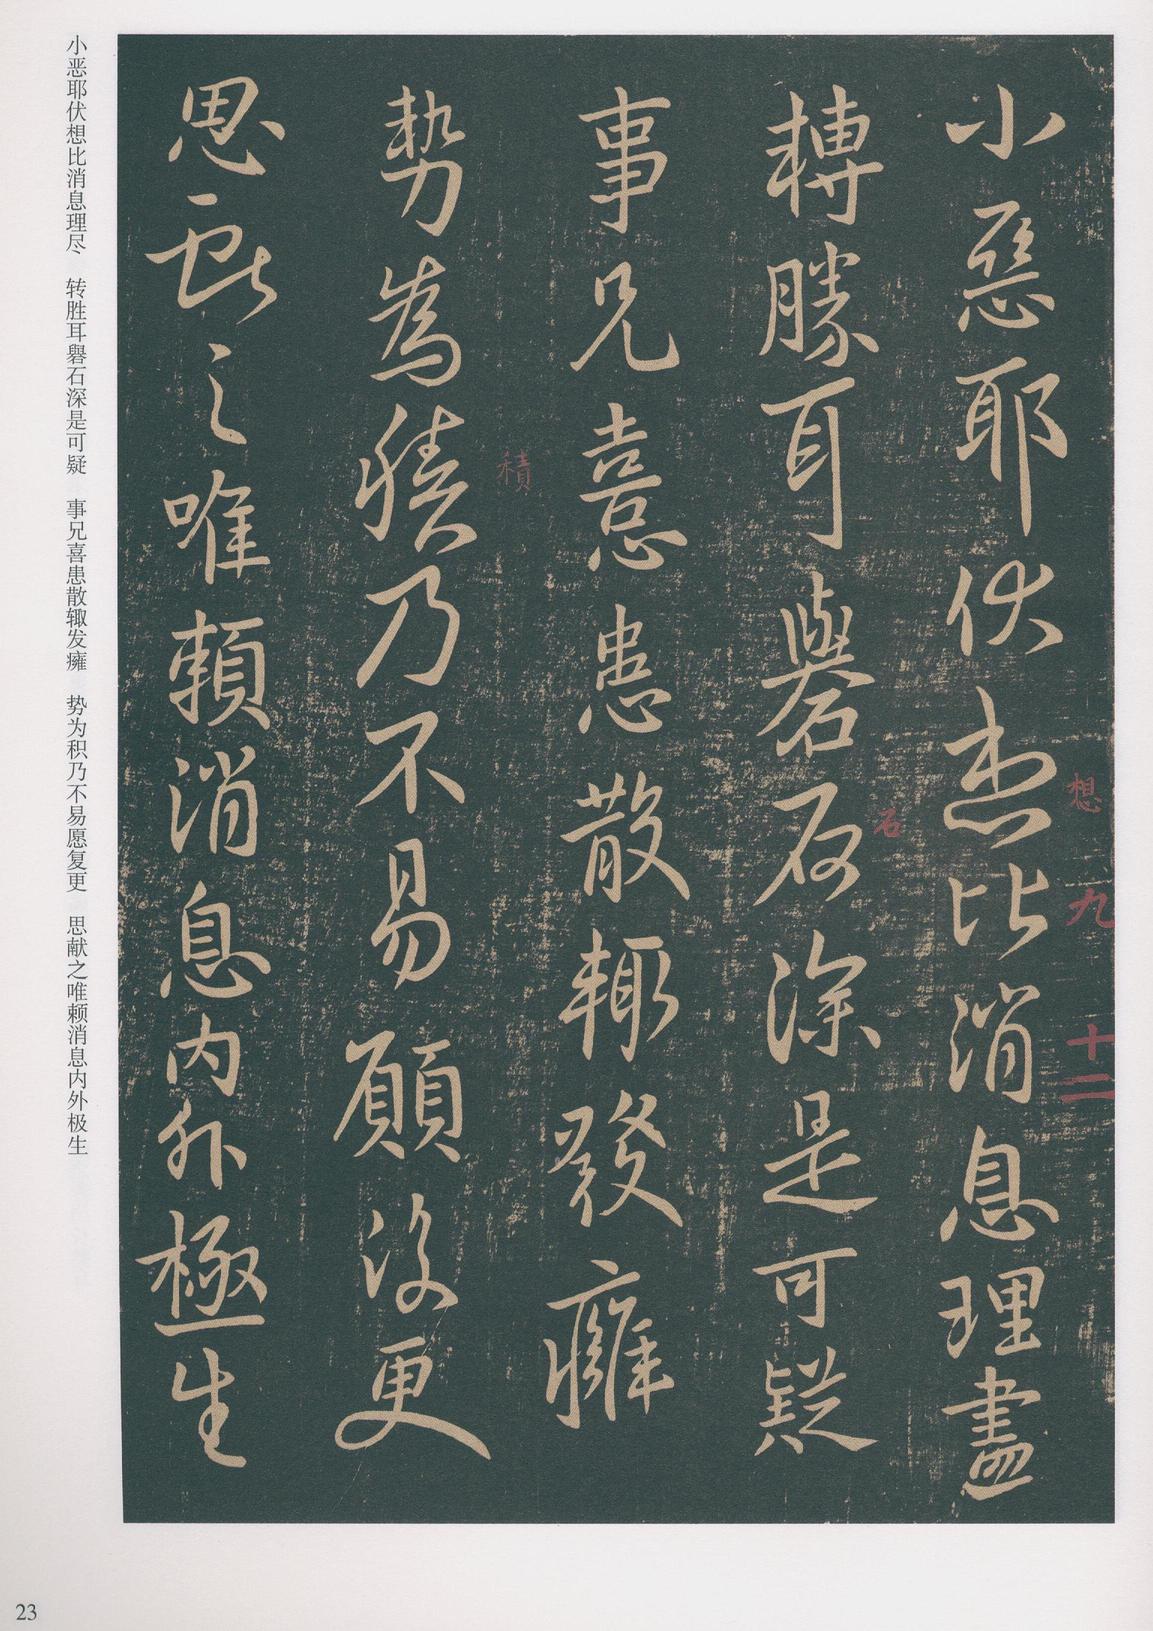 小惡耶伏想比消息理盡
轉勝耳礜石深是可疑
事兄憙患散輙發癰
勢為積乃不易願復更
思獻之唯賴消息內外極生
想
九
十二
石
積
小恶耶伏想比消息理尽、 转胜耳礜石深是可疑 事兄喜患散辄发癰 势为积乃不易愿复更 思献之唯赖消息内外极生
23